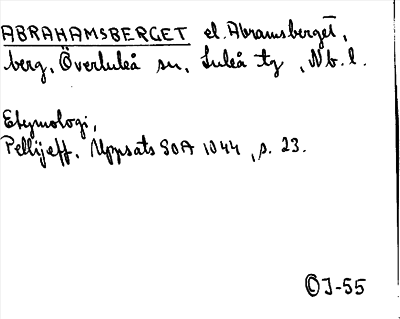 ABRAHAMSBERGET el. Abramsberget,
berg, Överluleå sn, Luleå tg, Nb. l.
Etymologi,
Pellijeff, Uppsats SOA 1044, s. 23.
J-55